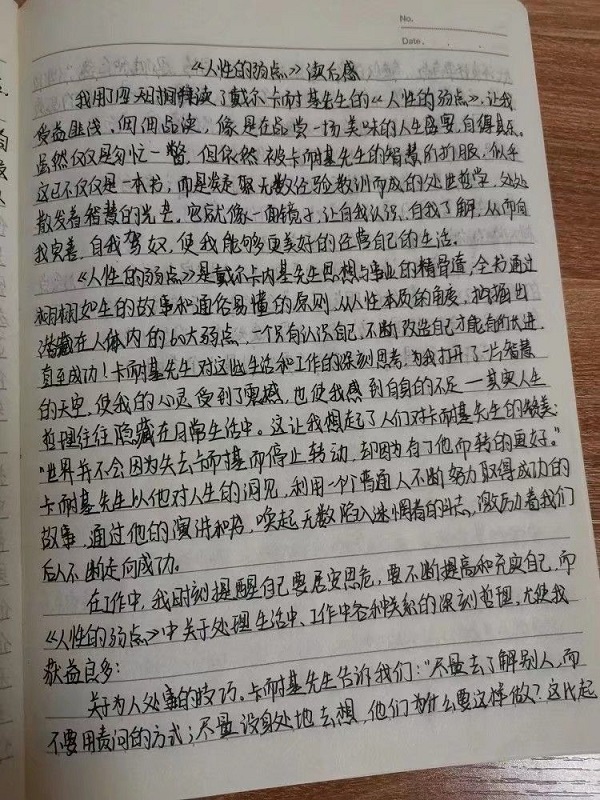 No.
Date.
《人性的弱点》读后感
我用了四天时间拜读了戴尔卡耐基先生的《人性的弱点》,让我
受益匪浅,细细品读,像是在品尝一场美味的人生盛宴,自得其乐。
虽然仅仅是匆忙一瞥,但依然被卡耐基先生的智慧所折服,似乎
这已不仅仅是一本书,而是凝聚无数经验教训而成的处世哲学,处处
散发着智慧的光芒,它就像一面镜子,让自我认识、自我了解,从而自
我完善、自我驾奴,使我能够更美好的经营自己的生活。
《人性的弱点》是戴尔卡内基先生思想与事业的精骨道,全书通过
栩栩如生的故事和通俗易懂的原则,从人性本质的角度,挖掘出
潜藏在人体内的60大弱点,一个只有认识自己,不断改造自己才能有所长进,
直至成功!卡耐基先生对这些生活和工作的深刻思考,为我打开了一片智慧
的天空,使我的心灵受到了震撼,也使我感到自身的不足——其实人生
哲理往往隐藏在日常生活中。这让我想起了人们对卡耐基先生的赞美:
“世界并不会因为失去卡耐基而停止转动,却因为有了他而转的更好。”
卡耐基先生以他对人生的洞见,利用一个个普通人不断努力取得成功的
故事,通过他的演讲和书,唤起无数陷入迷惘者的斗志,激励着我们
后人不断走向成功。
在工作中,我时刻提醒自己要居安思危,要不断提高和充实自己,而
《人性的弱点》中关于处理生活中、工作中各种关系的深刻哲理,尤使我
获益良多:
关于为人处事的技巧。卡耐基先生告诉我们:“尽量去了解别人,而
不要用责问的方式;尽量设身处地去想,他们为什么要这样做?这比起